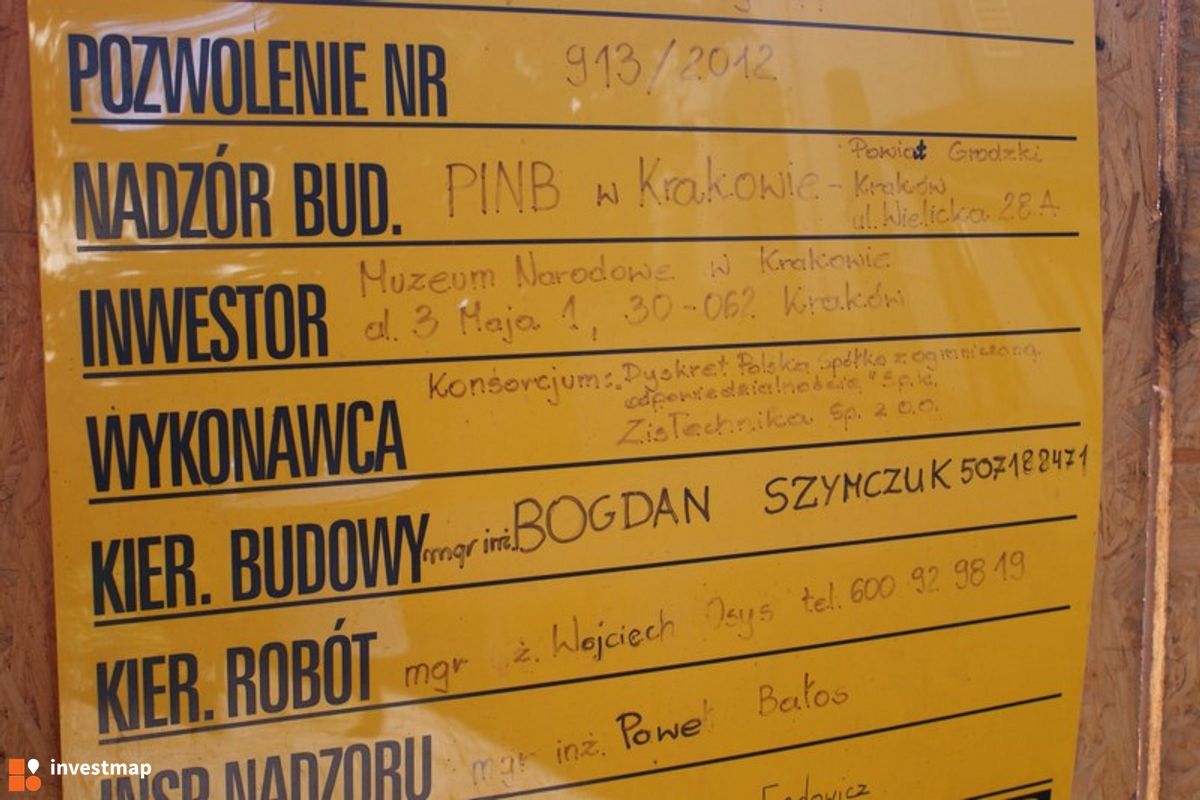 POZWOLENIE NR 913/2012
NADZÓR BUD. PINB w Krakowie - Powiat Grodzki
Kraków
ul. Wielicka 28A
INWESTOR Muzeum Narodowe w Krakowie
al. 3 Maja 1, 30-062 Kraków
WYKONAWCA Konsorcjum: "Dyskret Polska Spółka z ograniczoną
odpowiedzialnością" Sp. k.
ZisTechnika Sp. z o.o.
KIER. BUDOWY mgr inż. BOGDAN SZYMCZUK 507188471
KIER. ROBÓT mgr ż. Wojciech Osys tel. 600 92 98 19
INSP. NADZORU mgr inż. Paweł Bałos
investmap